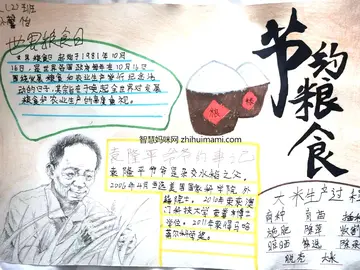 世界粮食日
世界粮食日起始于1981年10月
16日，是世界各国政府每年在10月16日
围绕发展粮食和农业生产举行纪念活
动的日子，其宗旨在于唤起全世界对发展
粮食和农业生产的高度重视。
粮
粮
节约粮食
智慧妈咪网 zhihuimami.com
袁隆平爷爷的事记
袁隆平爷爷是杂交水稻之父。
2006年4月当选美国国家科学院外
籍院士，2010年荣获澳
门科技大学荣誉博士
学位。2011年获得马哈
蒂尔科学奖。
大米生产过程
育种 育苗 插
施肥 除草
筛选
脱壳 大米